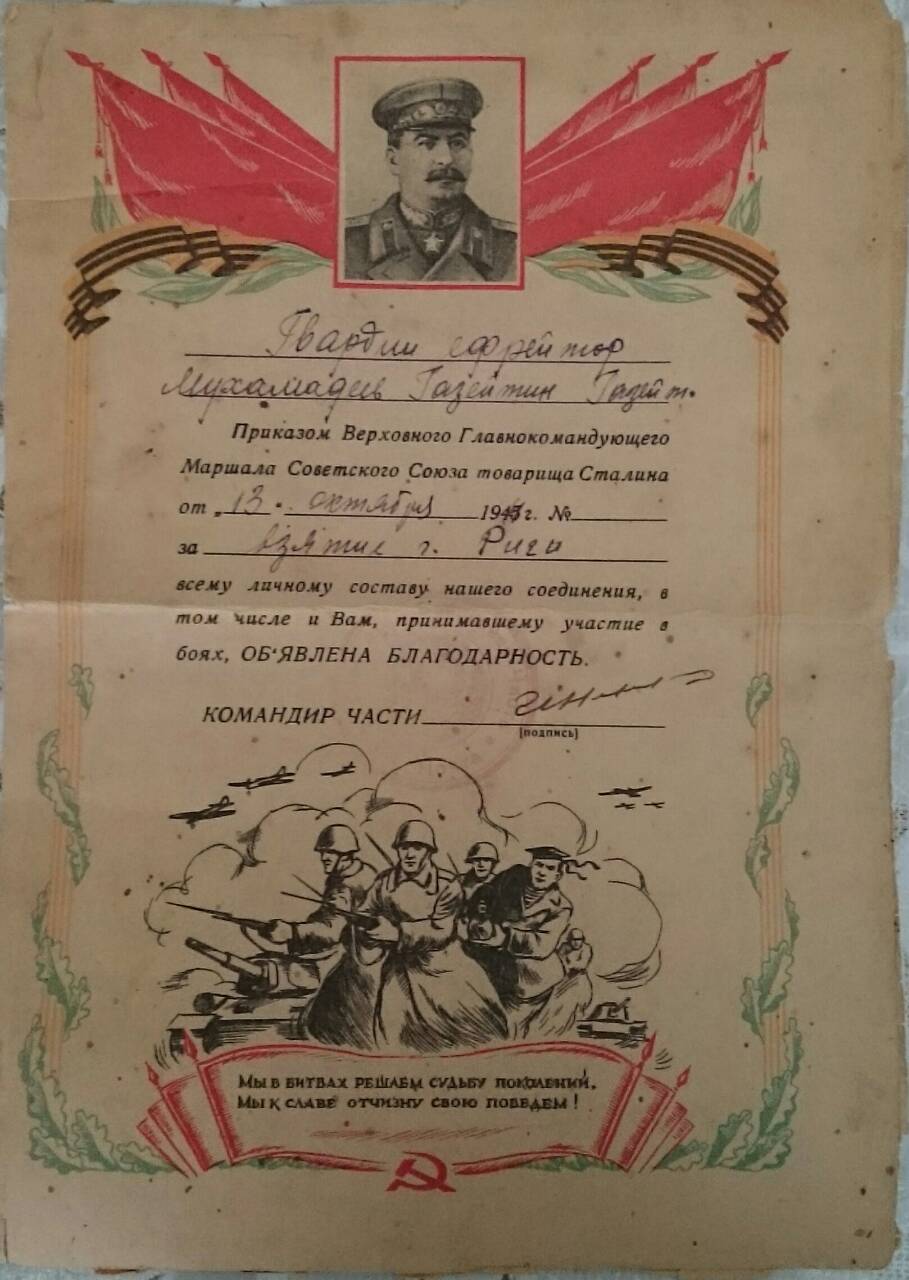 Гвардии ефрейтор
Мухамадеев Газейтин Газейт.
Приказом Верховного Главнокомандующего
Маршала Советского Союза товарища Сталина
от „13" октября 1944г. №
за взятие г. Риги
всему личному составу нашего соединения, в
том числе и Вам, принимавшему участие в
боях, ОБ'ЯВЛЕНА БЛАГОДАРНОСТЬ.
КОМАНДИР ЧАСТИ
(подпись)
Мы в битвах решаем судьбу поколений,
Мы к славе отчизну свою поведем!